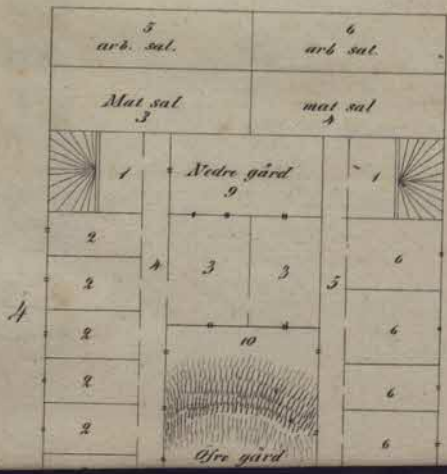 5
arb. sal.
6
arb sal.
Mat sal
3
mat sal
4
1
Nedre gård
9
1
2
4
3
3
5
6
2
4
2
10
6
2
6
2
6
Öfre gård